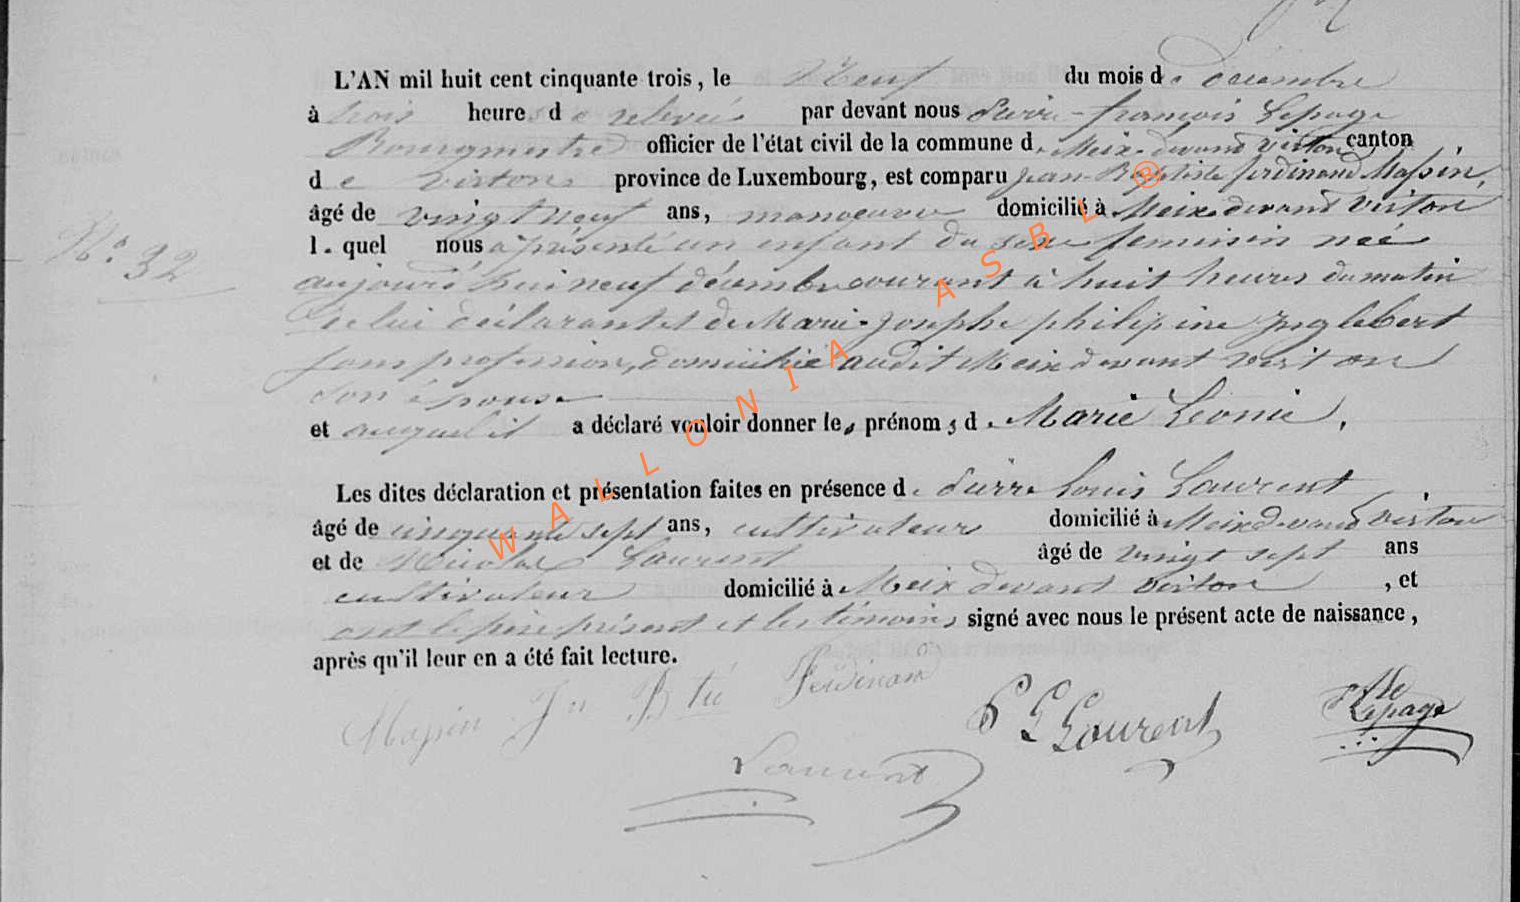 L'AN mil huit cent cinquante trois, le Neuf du mois de décembre
à trois heures de relevée par devant nous Pierre-françois Lepage
Bourgmestre officier de l'état civil de la commune de Meix-devant Virton canton
de Virton province de Luxembourg, est comparu Jean-Baptiste ferdinand Massin,
âgé de vingt neuf ans, manoeuvre domicilié à Meix-devant Virton
N° 32 lequel nous a présenté un enfant du sexe feminin née
aujourd'hui neuf décembre courant à huit heures du matin
de lui déclarant et de Marie-Josephe philipine Inglebert
sans profession, domiciliée audit Meix devant Virton
son épouse
et auquel il a déclaré vouloir donner les prénoms de Marie Leonie,
Les dites déclaration et présentation faites en présence de Pierre Louis Laurent
âgé de cinquante sept ans, cultivateur domicilié à Meix devant Virton
et de Nicolas Laurent âgé de vingt sept ans
cultivateur domicilié à Meix devant Virton, et
ont le père présent et les témoins, signé avec nous le présent acte de naissance,
après qu'il leur en a été fait lecture.
Massin Jn Bte Ferdinand
P L Laurent
Lepage
Laurent
WALLONIA ASBL ®